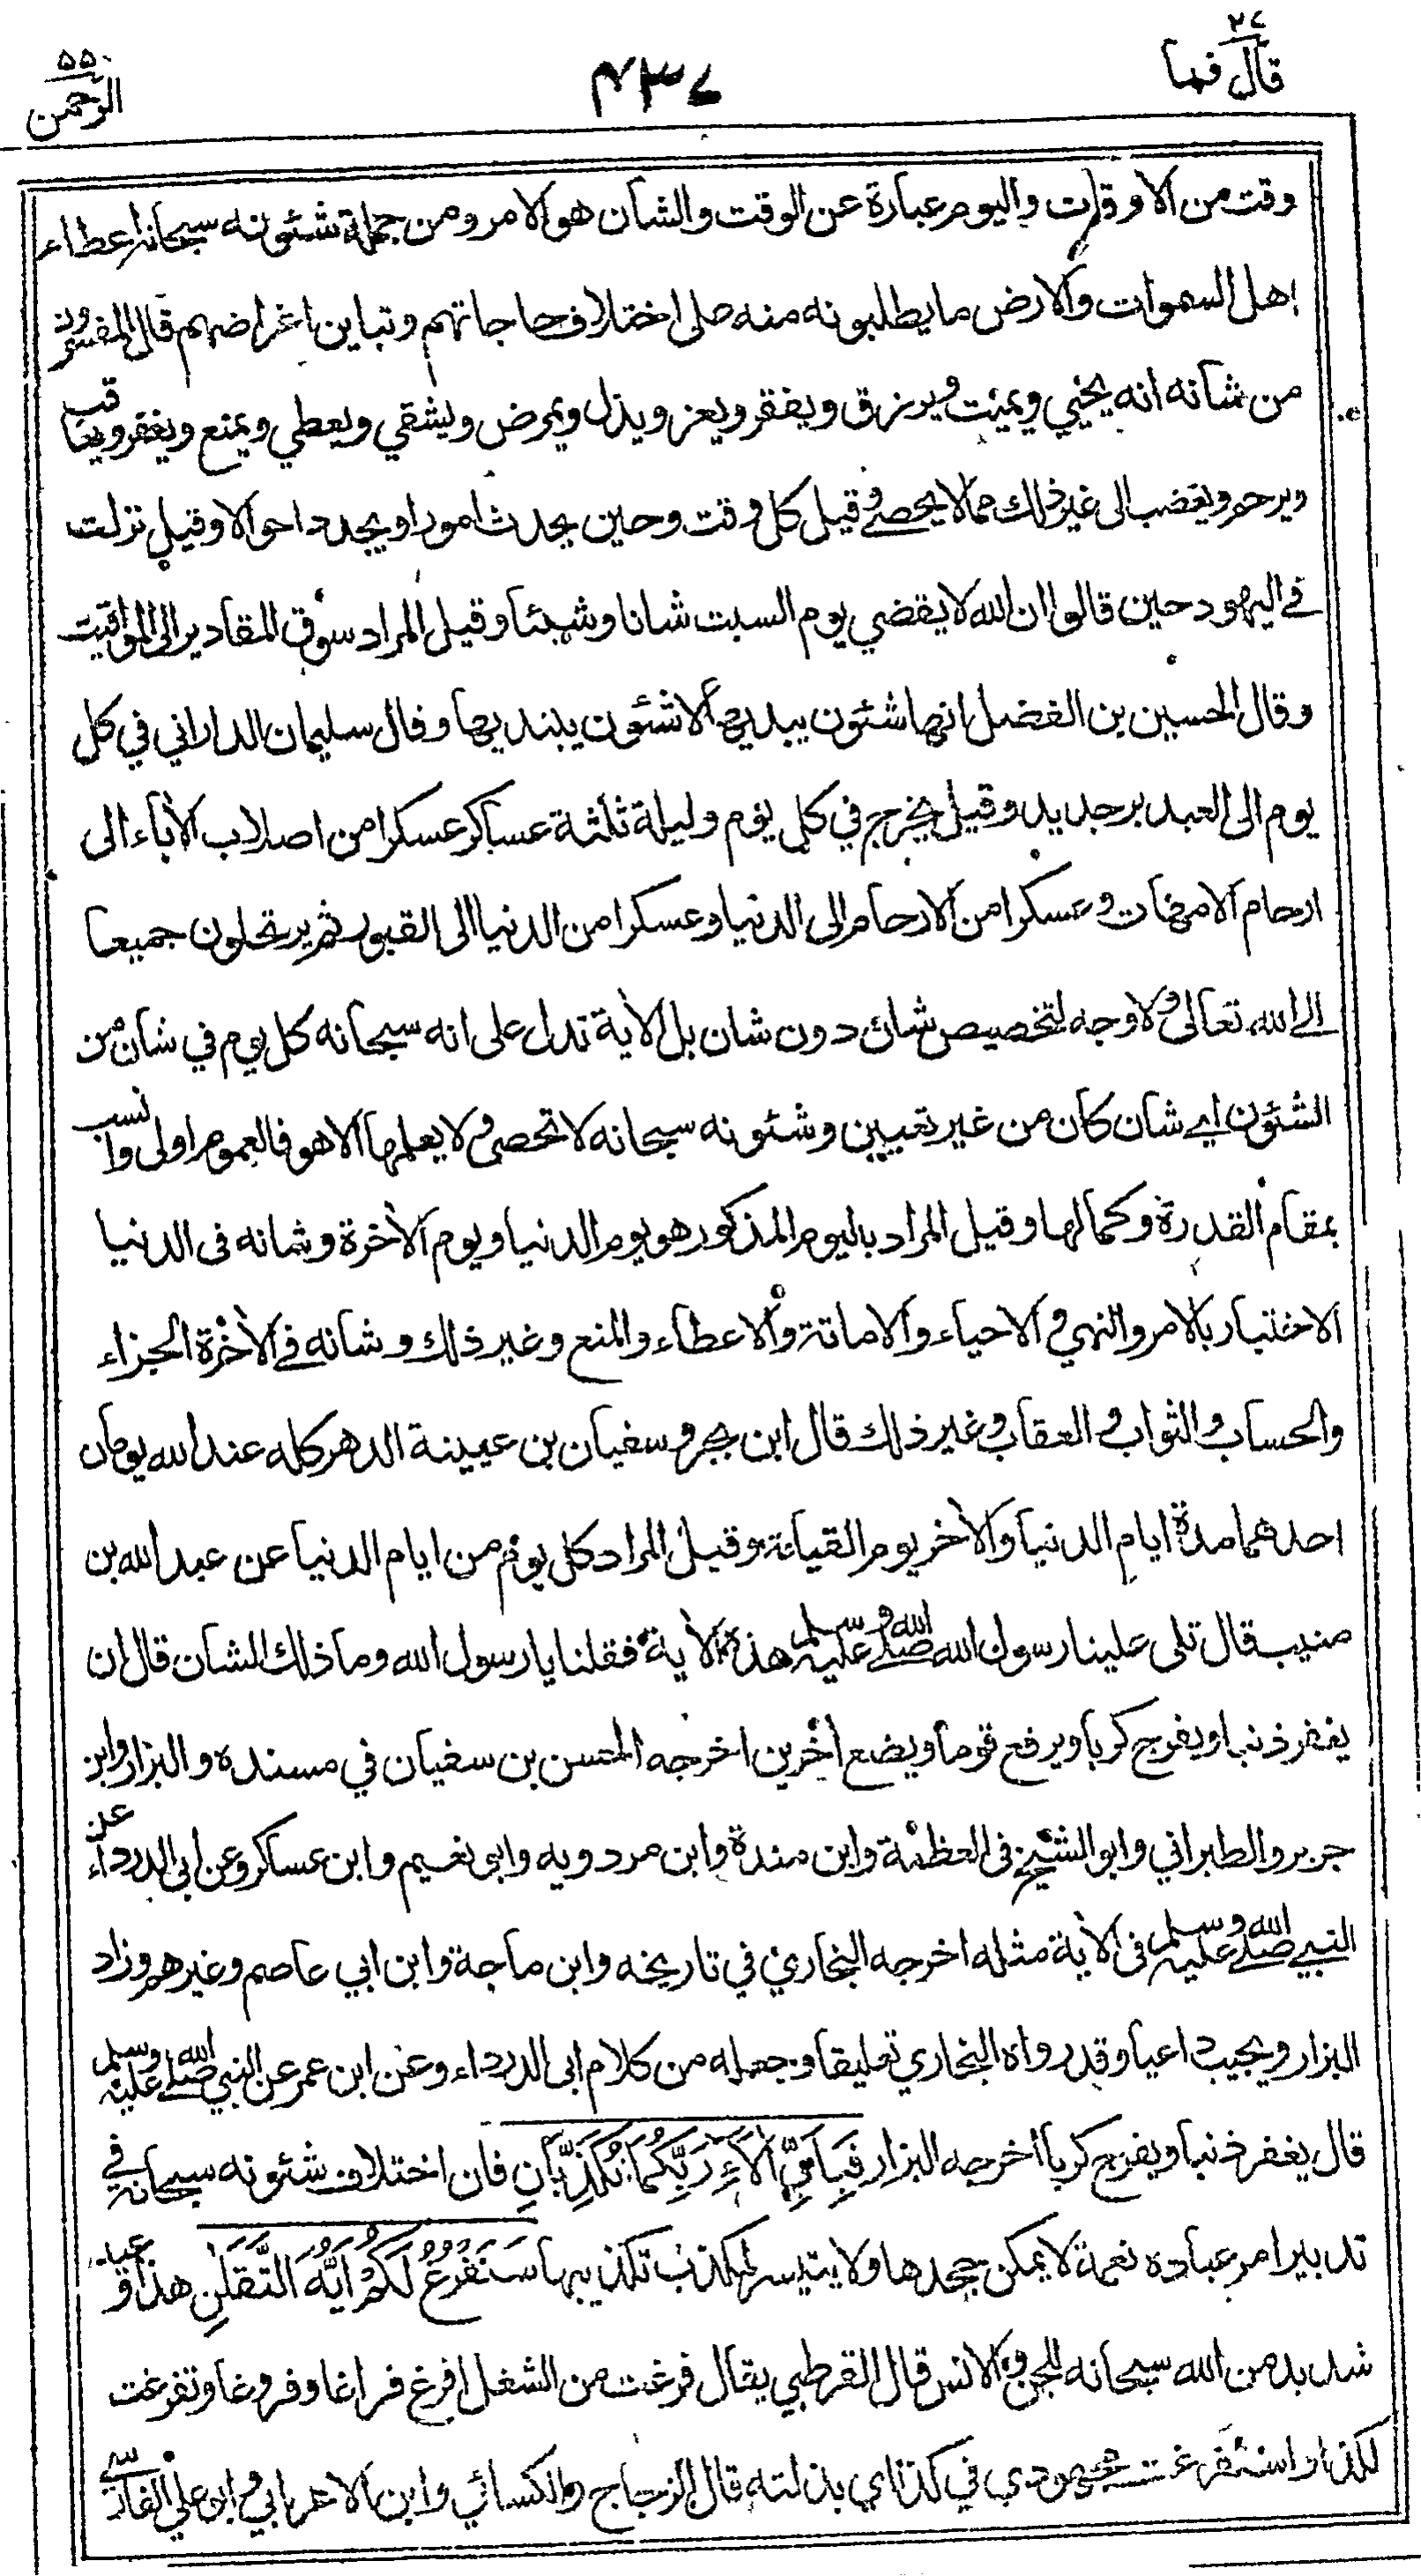 ٢٧
قال فما
٤٣٧
٥٥
الرحمن
وقت من الاوقات واليوم عبارة عن الوقت والشأن هو الامر ومن جملة شئونه سبحانه اعطاء
اهل السموات والارض ما يطلبونه منه على اختلاف حاجاتهم وتباين اغراضهم قال المفسرون
من شانه انه يحيي ويميت ويرزق ويفقر ويعز ويذل ويمرض ويشقي ويعطي ويمنع ويغفر ويعاقب
ويرحم ويغضب الى غير ذلك مما لا يحصى وقيل كل وقت وحين يحدث امورا ويجدد احوالا وقيل نزلت
في اليهود حين قالوا ان الله لا يقضي يوم السبت شانا وشيئا وقيل المراد سوق المقادير الى المواقيت
وقال الحسين بن الفضل انها شئون يبديها لا شئون يبتديها وقال سليمان الداراني في كل
يوم الى العبد بر جديد وقيل يخرج في كل يوم وليلة ثلثة عساكر عسكرا من اصلاب الآباء الى
ارحام الامهات وعسكرا من الارحام الى الدنيا وعسكرا من الدنيا الى القبور ثم يرتحلون جميعا
الى الله تعالى ولا وجه لتخصيص شان دون شان بل الآية تدل على انه سبحانه كل يوم في شان من
الشئون اي شان كان من غير تعيين وشئونه سبحانه لا تحصى ولا يعلمها الا هو فالعموم اولى وانسب
بمقام القدرة وكمالها وقيل المراد باليوم المذكور هو يوم الدنيا ويوم الآخرة وشانه في الدنيا
الاختبار بالامر والنهي والاحياء والاماتة والاعطاء والمنع وغير ذلك وشانه في الآخرة الجزاء
والحساب والثواب والعقاب وغير ذلك قال ابن بحر وسفيان بن عيينة الدهر كله عند الله يومان
احدهما مدة ايام الدنيا والآخر يوم القيامة وقيل المراد كل يوم من ايام الدنيا عن عبد الله بن
منيب قال تلى علينا رسول الله صلى الله عليه وسلم هذه الآية فقلنا يا رسول الله وما ذلك الشان قال ان
يغفر ذنبا ويفرج كربا ويرفع قوما ويضع آخرين اخرجه الحسن بن سفيان في مسنده والبزار وابن
جرير والطبراني وابو الشيخ في العظمة وابن مندة وابن مردويه وابي نعيم وابن عساكر وعن ابي الدرداء عن
النبي صلى الله عليه وسلم في الآية مثله اخرجه البخاري في تاريخه وابن ماجة وابن ابي عاصم وغيرهم وزاد
البزار ويجيب داعيا وقد رواه البخاري تعليقا وجعله من كلام ابي الدرداء وعن ابن عمر عن النبي صلى الله عليه وسلم
قال يغفر ذنبا ويفرج كربا اخرجه البزار فَبِأَيِّ آلَاءِ رَبِّكُمَا تُكَذِّبَانِ فان اختلاف شئونه سبحانه في
تدبير امر عباده نعمة لا يمكن جحدها ولا يتيسر لمكذب تكذيبها سَنَفْرُغُ لَكُمْ أَيُّهَ الثَّقَلَنِ هذا وعيد
شديد من الله سبحانه للجن والانس قال القرطبي يقال فرغت من الشغل افرغ فراغا وفروغا وتفرغت
لكذا واستفرغت مجهودي في كذا اي بذلته قال الزجاج والكسائي وابن الاعرابي وابو علي الفارسي